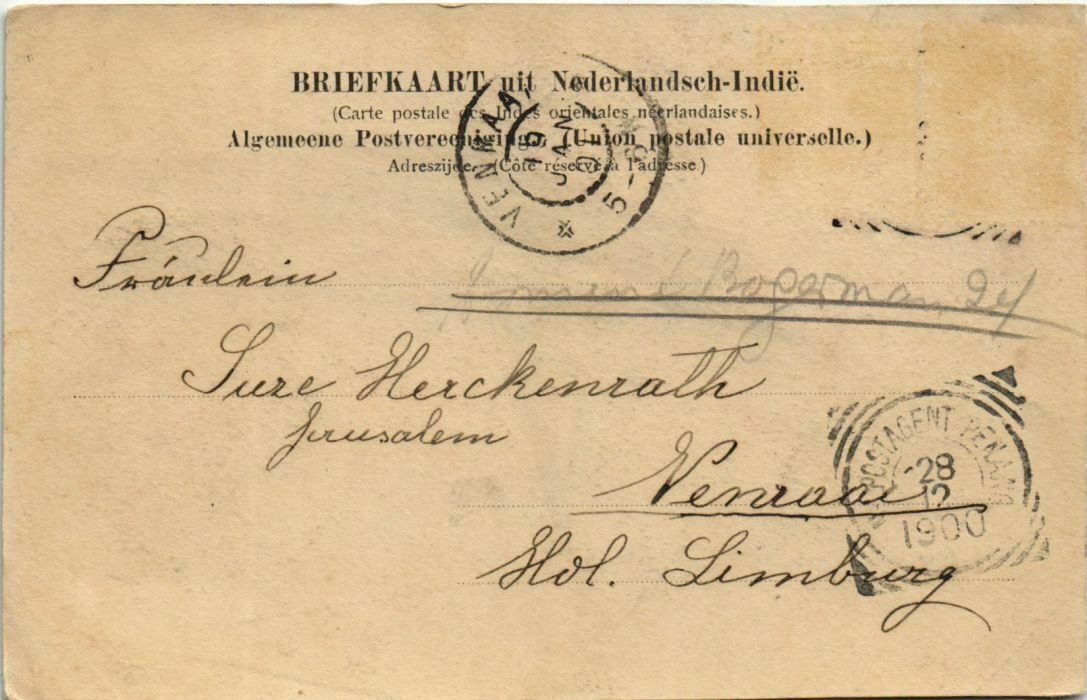 BRIEFKAART uit Nederlandsch-Indië.
(Carte postale des Indes orientales néerlandaises.)
Algemeene Postvereeniging. (Union postale universelle.)
Adreszijde. (Côté réservé à l'adresse.)
VENRAAI
19 JAN 01
5-
Fräulein
Bogerman
Suze Herckenrath
Jerusalem
Venraai
Hol. Limburg
POSTAGENT PENANG
28
12
1900